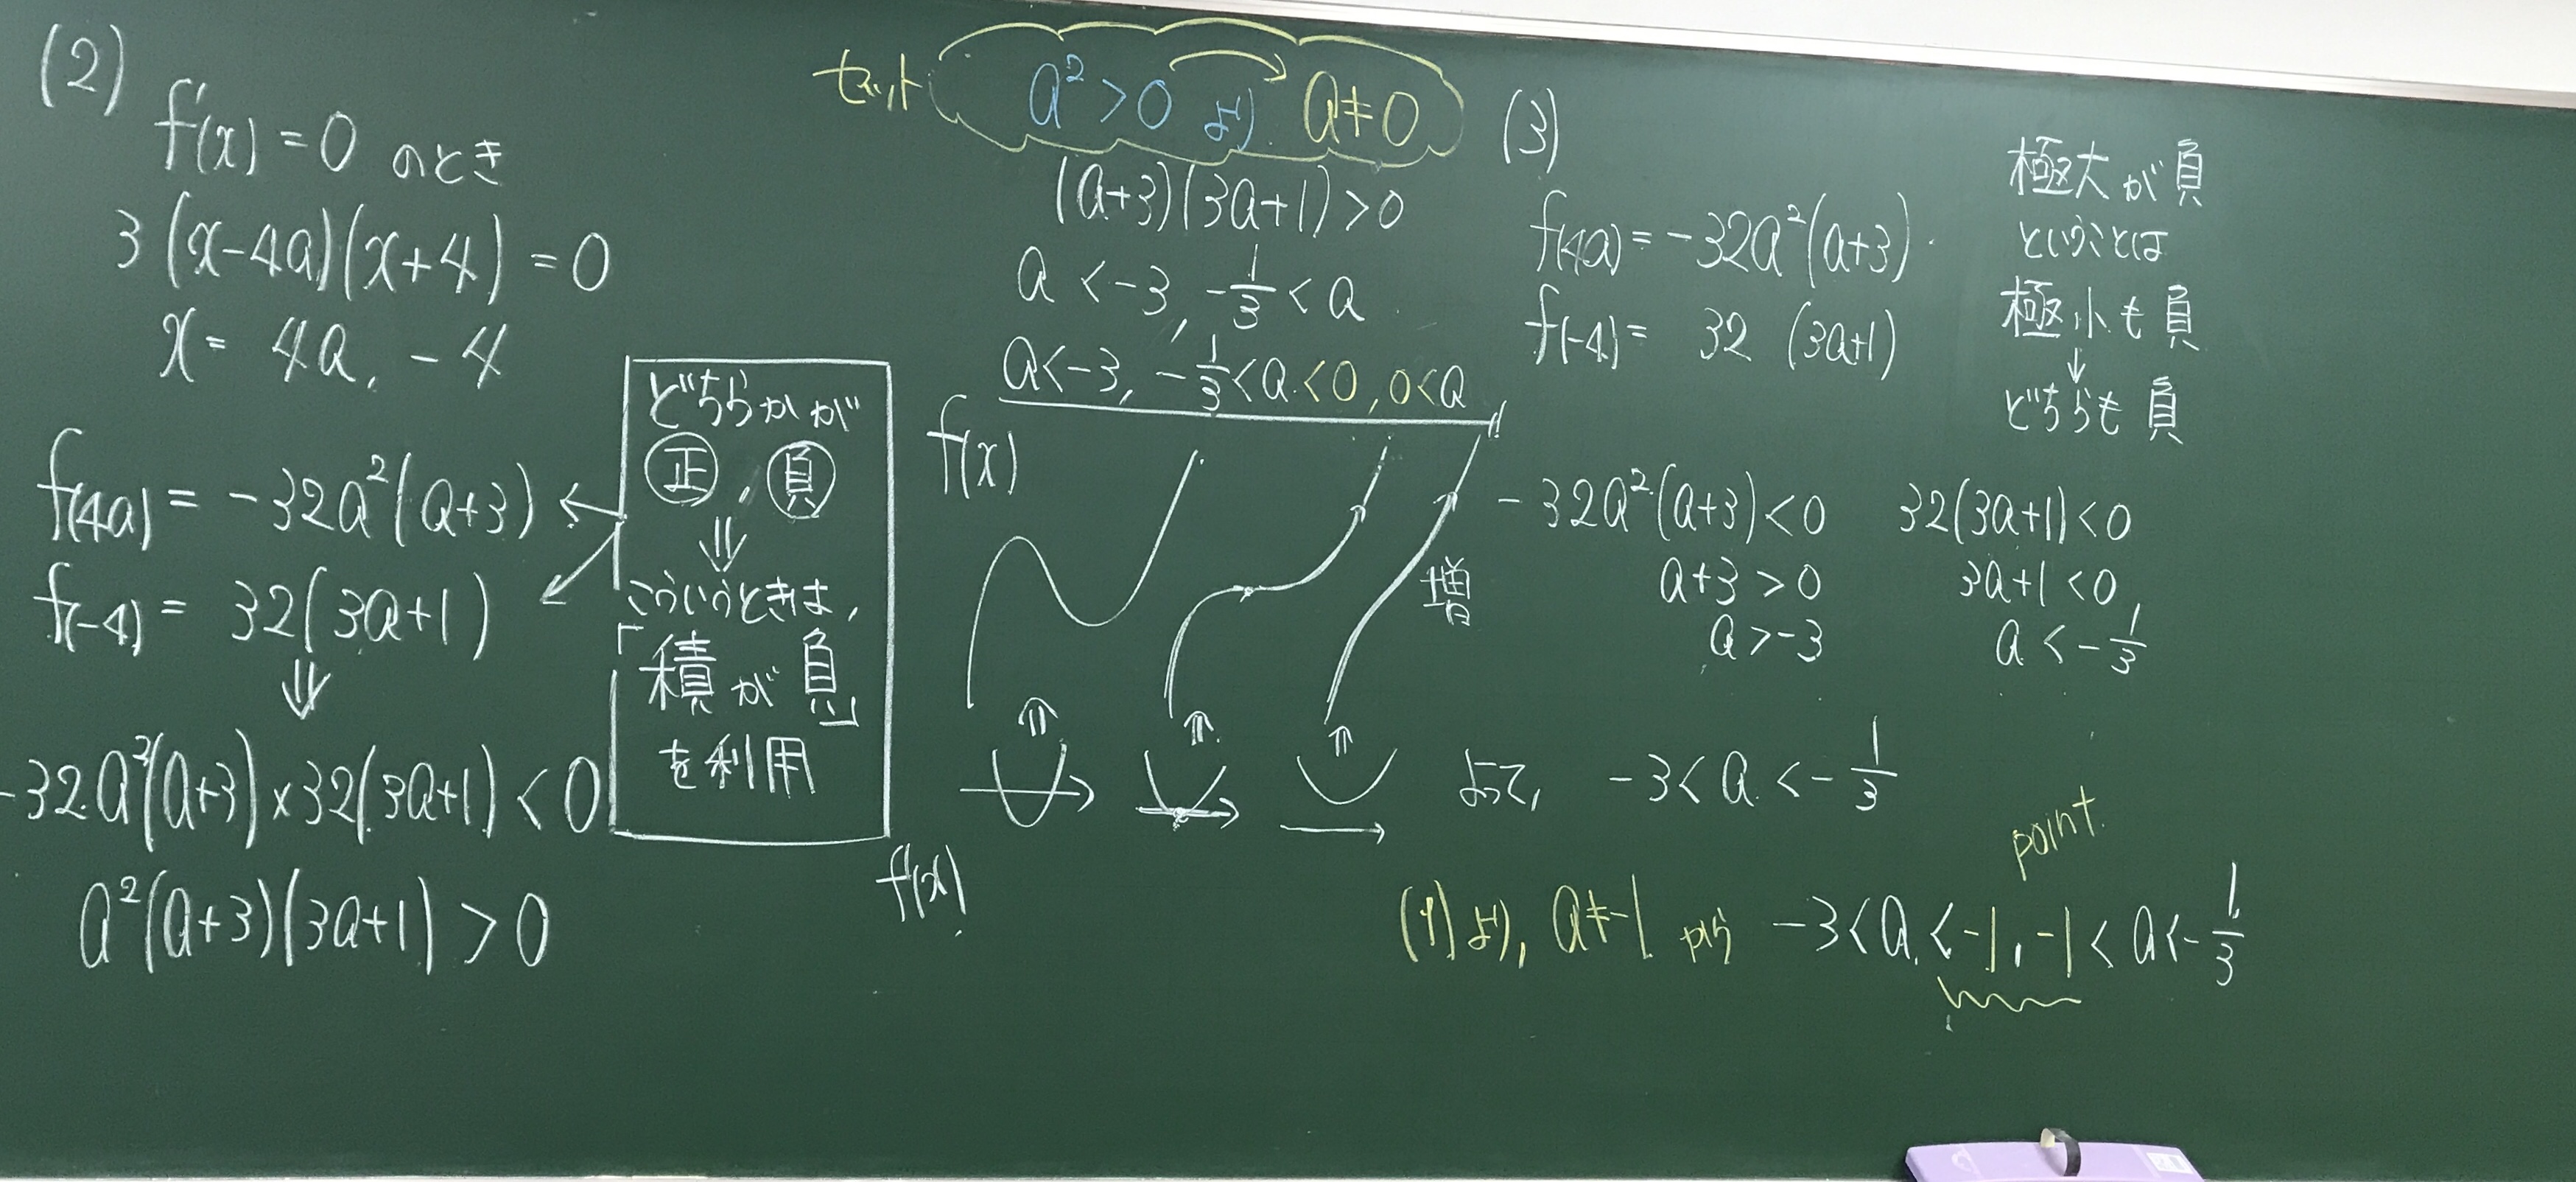 (2)
f'(x) = 0 のとき
3(x-4a)(x+4) = 0
x = 4a, -4
f(4a) = -32a²(a+3)
f(-4) = 32(3a+1)
⇓
-32a²(a+3)×32(3a+1) < 0
a²(a+3)(3a+1) > 0
どちらかが
正, 負
⇓
こういうときは,
「積が負」
を利用
セット
a² > 0 より a ≠ 0
(a+3)(3a+1) > 0
a < -3, -1/3 < a
a < -3, -1/3 < a < 0, 0 < a
f(x)
増
f'(x)
(3)
f(4a) = -32a²(a+3)
f(-4) = 32 (3a+1)
極大が負
ということは
極小も負
↓
どちらも負
-32a²(a+3) < 0
a+3 > 0
a > -3
32(3a+1) < 0
3a+1 < 0
a < -1/3
よって, -3 < a < -1/3
point
(1)より, a ≠ -1 から -3 < a < -1, -1 < a < -1/3